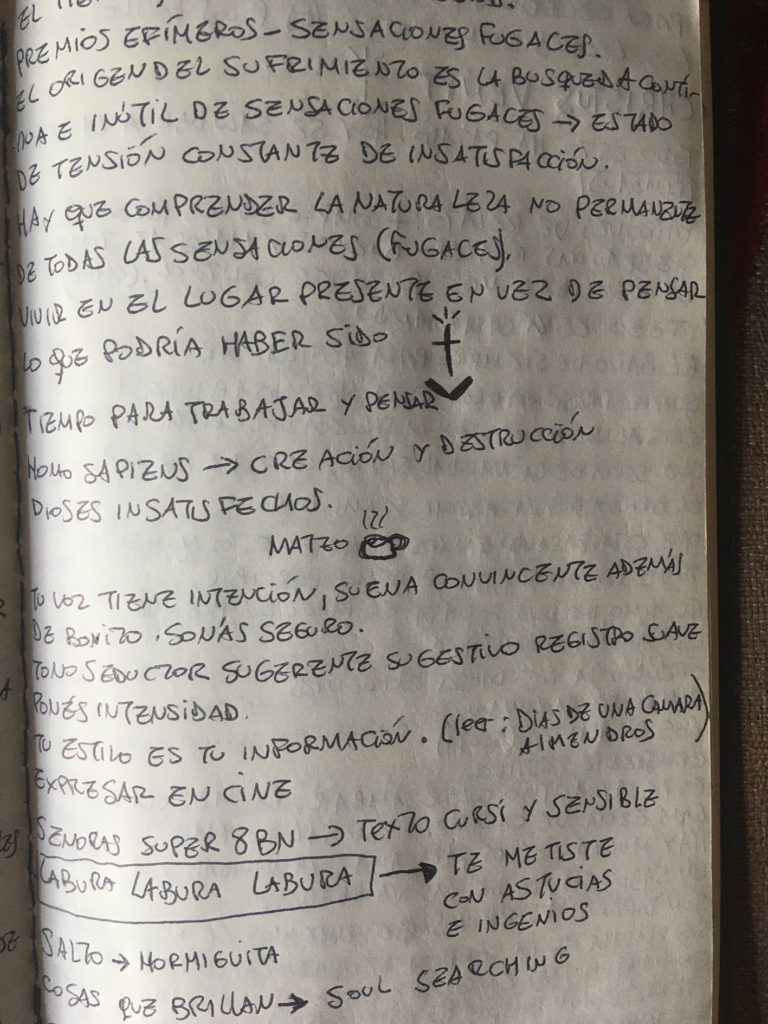 EL
PREMIOS EFÍMEROS - SENSACIONES FUGACES.
EL ORIGEN DEL SUFRIMIENTO ES LA BUSQUEDA CONTÍ-
NUA E INÚTIL DE SENSACIONES FUGACES → ESTADO
DE TENSIÓN CONSTANTE DE INSATISFACCIÓN.
HAY QUE COMPRENDER LA NATURALEZA NO PERMANENTE
DE TODAS LAS SENSACIONES (FUGACES).
VIVIR EN EL LUGAR PRESENTE EN VEZ DE PENSAR
LO QUE PODRÍA HABER SIDO
TIEMPO PARA TRABAJAR Y PENSAR
HOMO SAPIENS → CREACIÓN Y DESTRUCCIÓN
DIOSES INSATISFECHOS.
MATEO
TU VOZ TIENE INTENCIÓN, SUENA CONVINCENTE ADEMÁS
DE BONITO. SONÁS SEGURO.
TONO SEDUCTOR SUGERENTE SUGESTIVO REGISTRO SUAVE
PONÉS INTENSIDAD.
TU ESTILO ES TU INFORMACIÓN. (leer: DIAS DE UNA CAMARA
ALMENDROS)
EXPRESAR EN CINE
SEÑORAS SUPER 8 BN → TEXTO CURSÍ Y SENSIBLE
LABURA LABURA LABURA → TE METISTE
CON ASTUCIAS
E INGENIOS
SALTO → HORMIGUITA
COSAS QUE BRILLAN → SOUL SEARCHING